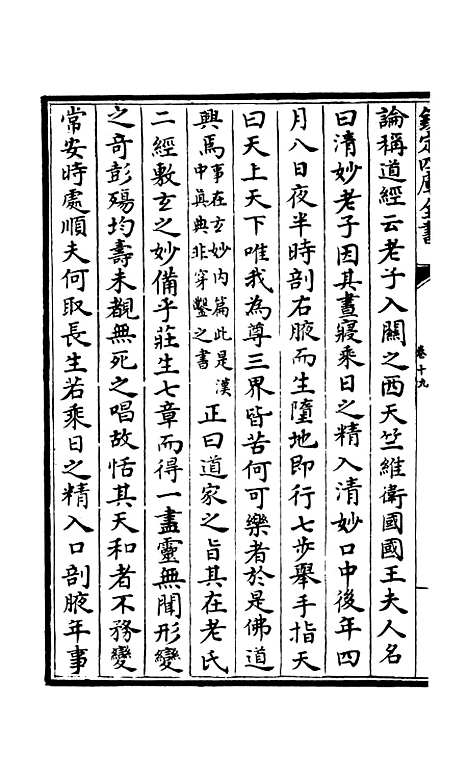 欽定四庫全書
卷十九
論稱道經云老子入關之西天竺維衛國國王夫人名
曰清妙老子因其晝寢乘日之精入清妙口中後年四
月八日夜半時剖右腋而生墮地即行七步舉手指天
曰天上天下唯我為尊三界皆苦何可樂者於是佛道
興焉事在玄妙内篇此是漢中真典非穿鑿之書正曰道家之旨其在老氏
二經敷玄之妙備乎莊生七章而得一盡靈無聞形變
之奇彭殤均壽未覩無死之唱故恬其天和者不務變
常安時處順夫何取長生若乘日之精入口剖腋年事